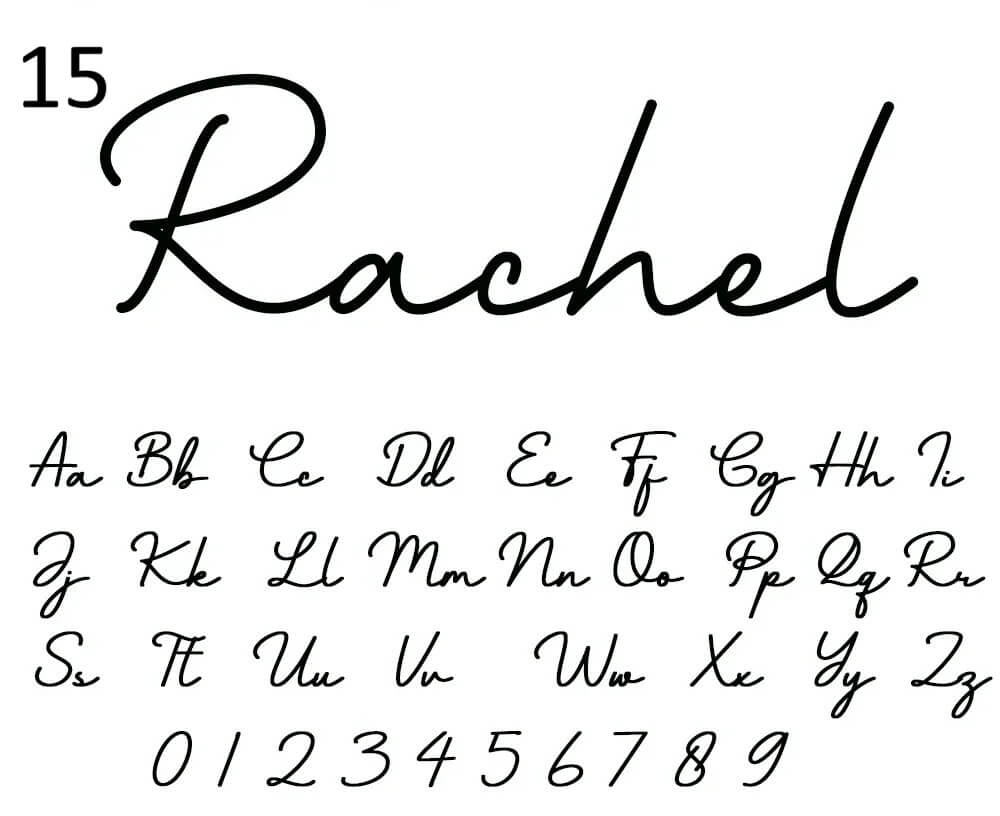 15
Rachel
Aa Bb Cc Dd Ee Ff Gg Hh Ii
Jj Kk Ll Mm Nn Oo Pp Qq Rr
Ss Tt Uu Vv Ww Xx Yy Zz
0 1 2 3 4 5 6 7 8 9